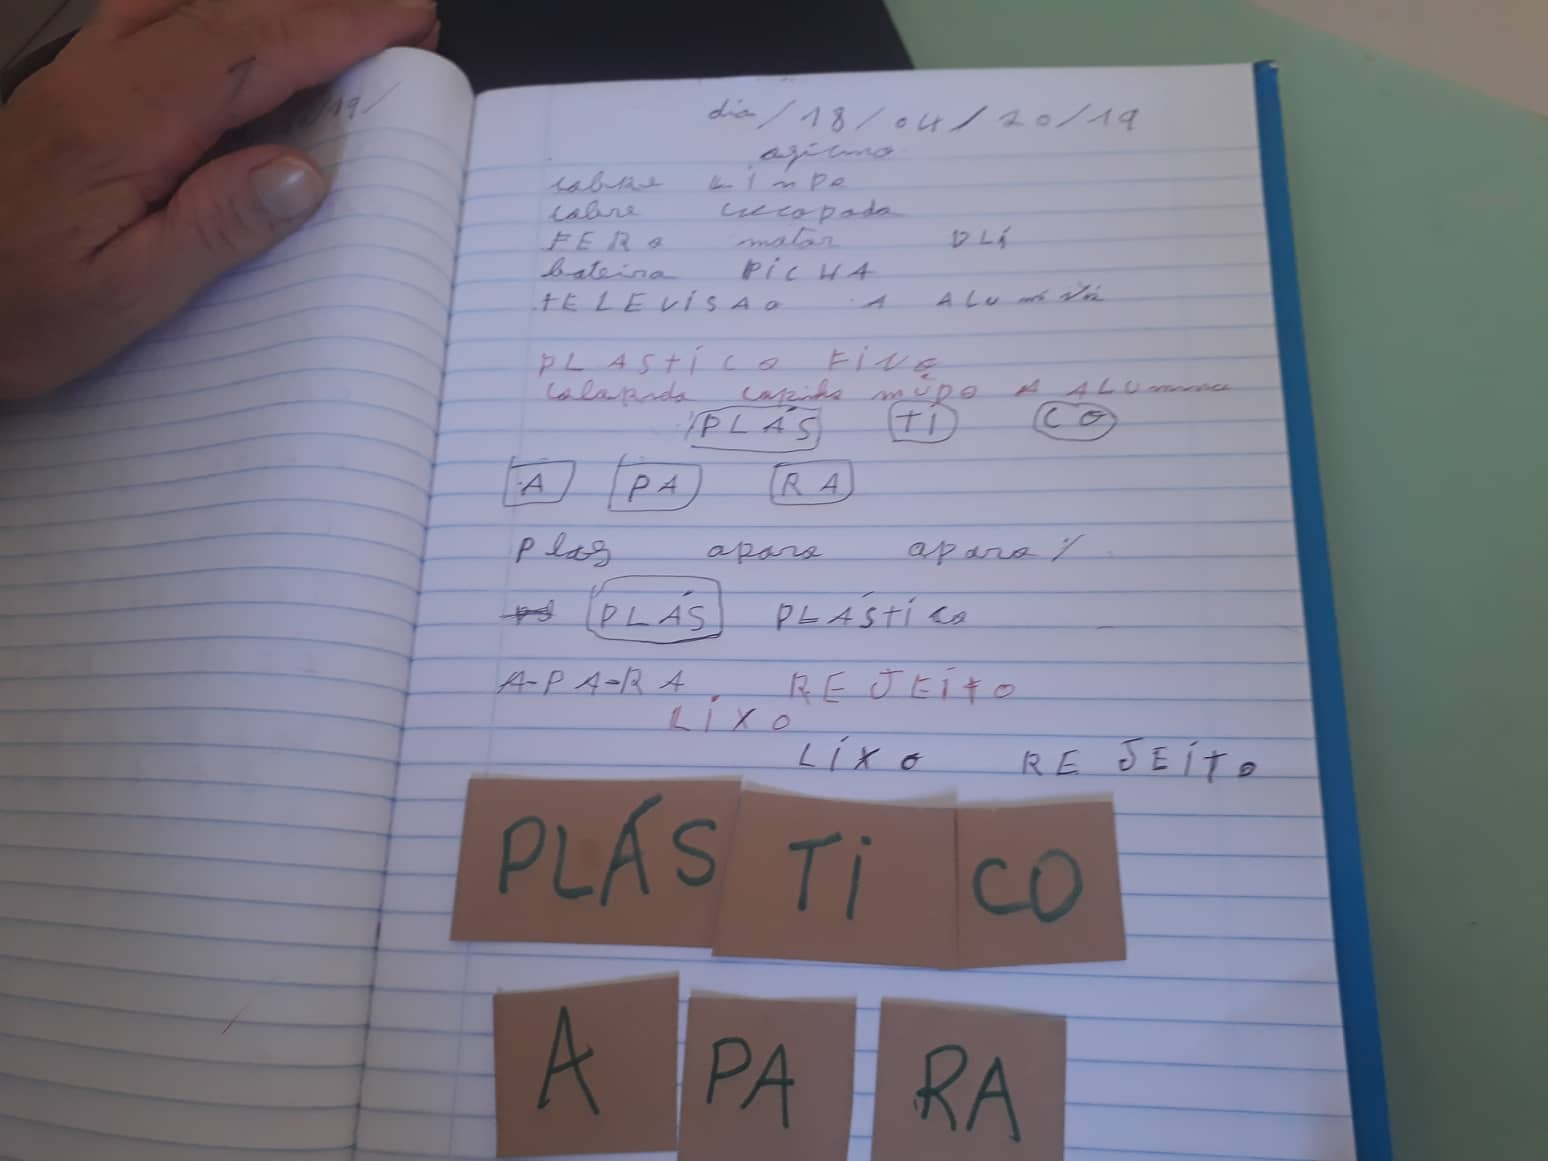 19/
dia/18/04/20/19
cobre LimpO
cobre
FERO motor
bateira PiCHA
tELEViSAO A ALuminiu
PLAStiCO FiNO
A ALUminiu
PLÁS Ti CO
A PA RA
plas apara apara
PLÁS PLÁStico
A-PA-RA. REJEitO
LiXO
LiXO REJEitO
PLÁS Ti CO
A PA RA